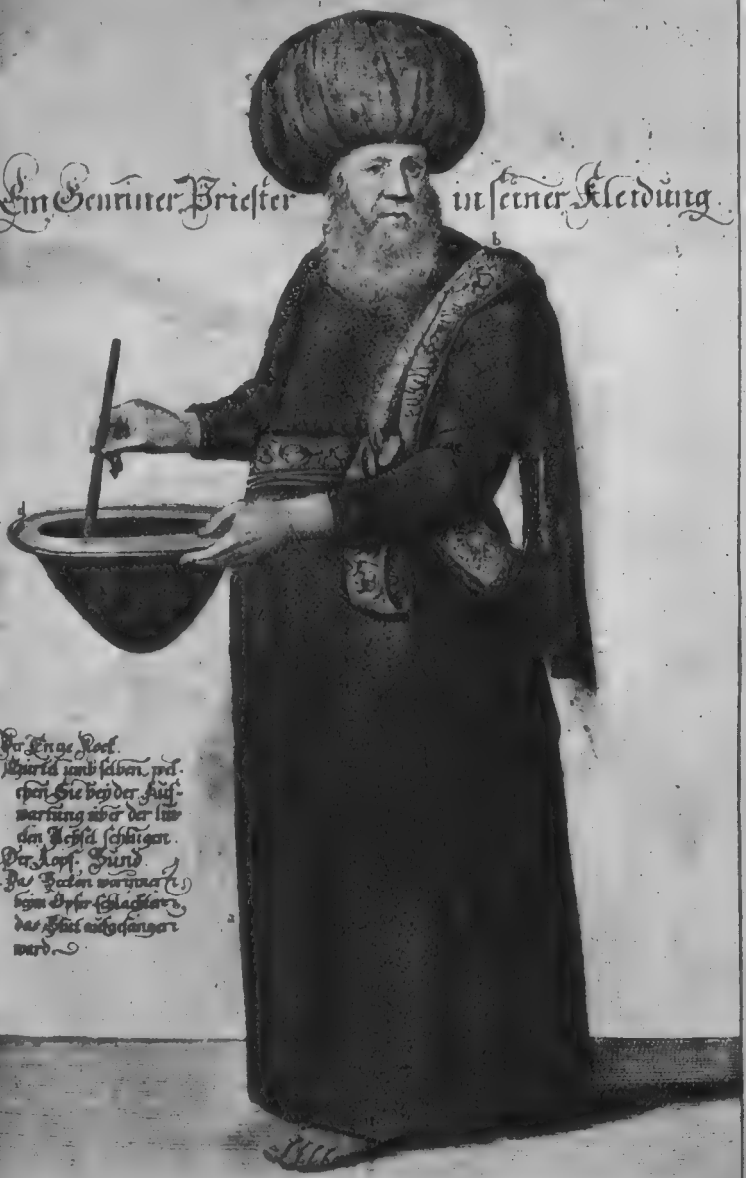 Ein Gemeiner Priester in seiner Kleidung.
b
d
Der Enge Rock.
Gürtel umb selben, wel-
chen Sie bey der Auf-
wartung über der lin-
cken Achsel schlugen.
Der Kopf-Bund
Das Becken worinnen
beym Opfer schlachten
das Blut aufgefangen
ward
a